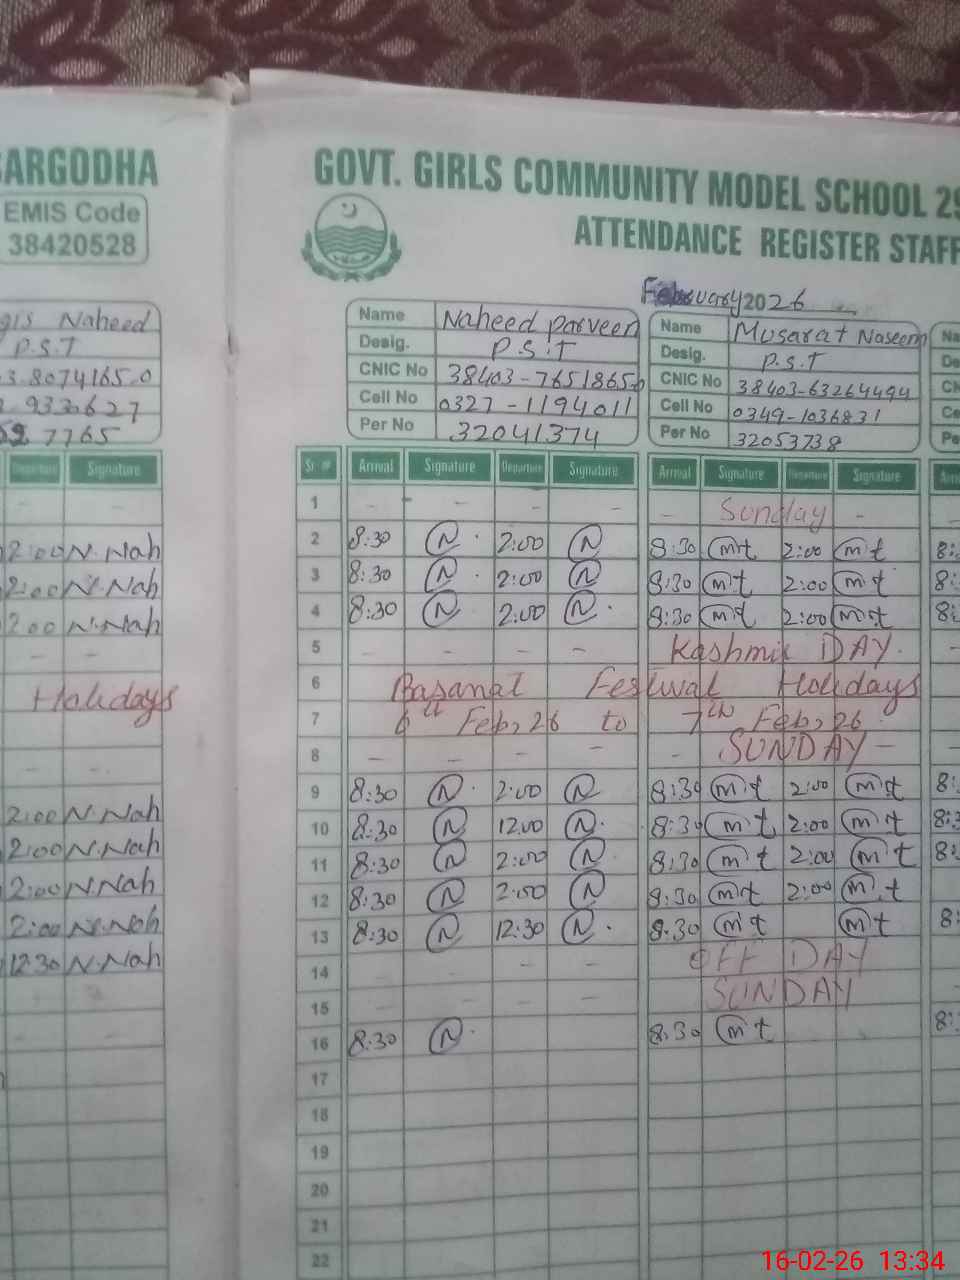 SARGODHA
EMIS Code
38420528
gis Naheed
P.S.T
3-8074165-0
9330627
7765
Departure Signature
2:00 N.Nah
2:00 N.Nah
2:00 N.Nah
Holidays
2:00 N.Nah
2:00 N.Nah
2:00 N.Nah
2:00 N.Nah
12:30 N.Nah
GOVT. GIRLS COMMUNITY MODEL SCHOOL 29
ATTENDANCE REGISTER STAFF
February 2026
Name Naheed parveen
Desig. P.S.T
CNIC No 38403-7651865-0
Cell No 0327-1194011
Per No 32041374
Name Musarat Naseem
Desig. P.S.T
CNIC No 38403-63264494
Cell No 0349-1036831
Per No 32053738
Sr. # Arrival Signature Departure Signature Arrival Signature Departure Signature
1 - - - - - Sunday -
2 8:30 N 2:00 N 8:30 mt 2:00 mt 8:
3 8:30 N 2:00 N 8:30 mt 2:00 mt 8:
4 8:30 N 2:00 N 8:30 mt 2:00 mt 8:
5 - - - - Kashmir DAY.
6 Basanat Festival Holidays
7 6th Feb, 26 to 7th Feb, 26
8 - - - - - SUNDAY -
9 8:30 N 2:00 N 8:30 mt 2:00 mt 8:
10 8:30 N 12:00 N 8:30 mt 2:00 mt 8:3
11 8:30 N 2:00 N 8:30 mt 2:00 mt 8:
12 8:30 N 2:00 N 8:30 mt 2:00 mt
13 8:30 N 12:30 N 8:30 mt mt 8:
14 - - - - OFF DAY
15 - - - - SUNDAY
16 8:30 N 8:30 mt 8:
17
18
19
20
21
22
16-02-26 13:34